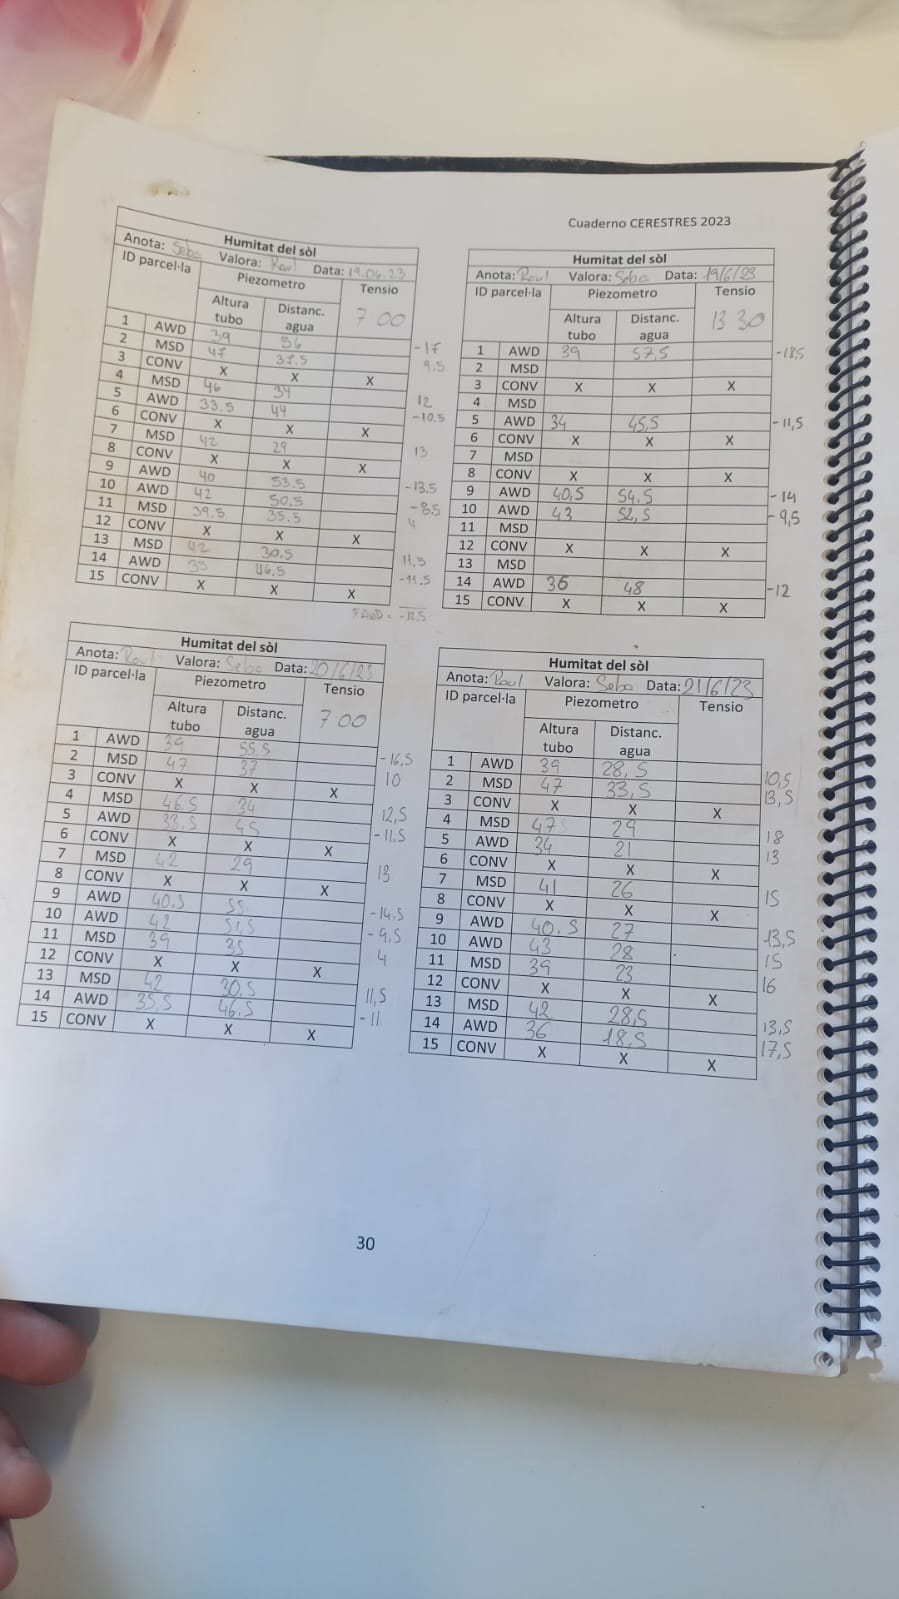 Cuaderno CERESTRES 2023
Humitat del sòl
Anota: Seba Valora: Raul Data: 19.06.23
ID parcel·la Piezometro Tensio
Altura tubo Distanc. agua 7 00
1 AWD 39 56 -17
2 MSD 47 37.5 9.5
3 CONV X X X
4 MSD 46 34 12
5 AWD 33.5 44 -10.5
6 CONV X X X
7 MSD 42 29 13
8 CONV X X X
9 AWD 40 53.5 -13.5
10 AWD 42 50.5 -8.5
11 MSD 39.5 35.5 4
12 CONV X X X
13 MSD 42 30.5 11.5
14 AWD 35 46.5 -11.5
15 CONV X X X
AWD = -12.5
Humitat del sòl
Anota: Raul Valora: Seba Data: 19/6/23
ID parcel·la Piezometro Tensio
Altura tubo Distanc. agua 13 30
1 AWD 39 57,5 -18,5
2 MSD
3 CONV X X X
4 MSD
5 AWD 34 45,5 -11,5
6 CONV X X X
7 MSD
8 CONV X X X
9 AWD 40,5 54,5 -14
10 AWD 43 52,5 -9,5
11 MSD
12 CONV X X X
13 MSD
14 AWD 36 48 -12
15 CONV X X X
Humitat del sòl
Anota: Raul Valora: Seba Data: 20/6/23
ID parcel·la Piezometro Tensio
Altura tubo Distanc. agua 7 00
1 AWD 39 55.5 -16,5
2 MSD 47 37 10
3 CONV X X X
4 MSD 46,5 34 12,5
5 AWD 33,5 45 -11,5
6 CONV X X X
7 MSD 42 29 13
8 CONV X X X
9 AWD 40,5 55 -14,5
10 AWD 42 51,5 -9,5
11 MSD 39 35 4
12 CONV X X X
13 MSD 42 30,5 11,5
14 AWD 35,5 46,5 -11
15 CONV X X X
Humitat del sòl
Anota: Raul Valora: Seba Data: 21/6/23
ID parcel·la Piezometro Tensio
Altura tubo Distanc. agua
1 AWD 39 28,5 10,5
2 MSD 47 33,5 13,5
3 CONV X X X
4 MSD 47 29 18
5 AWD 34 21 13
6 CONV X X X
7 MSD 41 26 15
8 CONV X X X
9 AWD 40.5 27 13,5
10 AWD 43 28 15
11 MSD 39 23 16
12 CONV X X X
13 MSD 42 28,5 13,5
14 AWD 36 18,5 17,5
15 CONV X X X
30